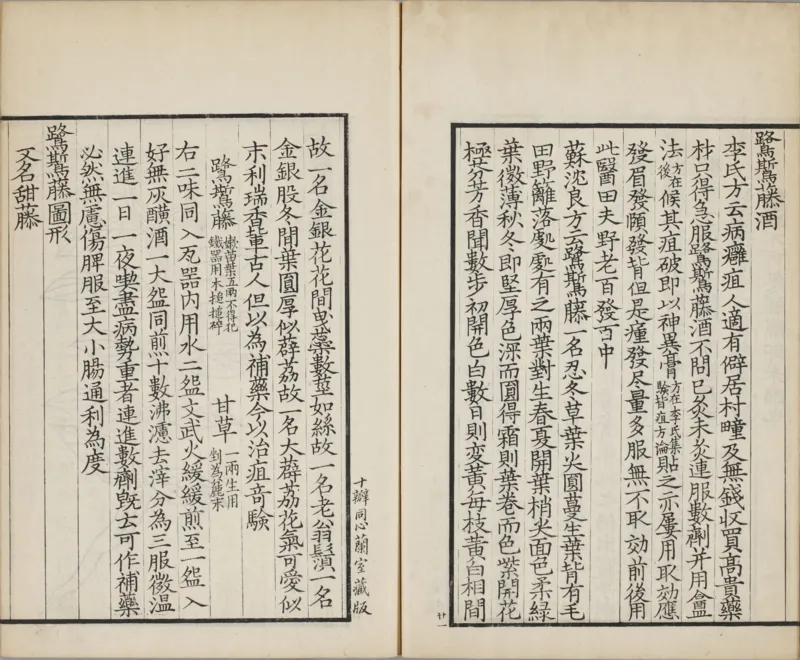 鷺鷥藤酒
李氏方云病癰疽人適有僻居村疃及無錢收買高貴藥
材只得急服鷺鷥藤酒不問已灸未灸連服數劑并用盒
法方在後候其疽破即以神異膏方在李氏集驗背疽方論貼之亦屢用取效應
發眉發頤發背但是瘇發尽量多服無不取效前後用
此醫田夫野老百發百中
蘇沈良方云鷺鷥藤一名忍冬草葉尖圓蔓生葉背有毛
田野籬落處處有之兩葉對生春夏開葉梢尖面色柔綠
葉微薄秋冬即堅厚色深而圓得霜則葉卷而色紫開花
極芬芳香聞數步初開色白數日則变黃每枝黃白相間
廿一
故一名金銀花花間曳蘂數莖如絲故一名老翁鬚一名
金銀股冬間葉圓厚似薜荔故一名大薜荔花氣可愛似
末利瑞香輩古人但以為補藥今以治疽奇驗
鷺鷥藤嫩苗葉五兩不得犯鐵器用木搥搥碎 甘草一兩生用剉為麄末
右二味同入瓦器內用水二盌文武火緩緩煎至一盌入
好無灰醶酒一大盌同煎十數沸濾去滓分為三服微溫
連進一日一夜喫盡病勢重者連進數劑旣去可作補藥
必然無慮傷脾服至大小腸通利為度
鷺鷥藤圖形
又名甜藤
十瓣同心蘭室藏版